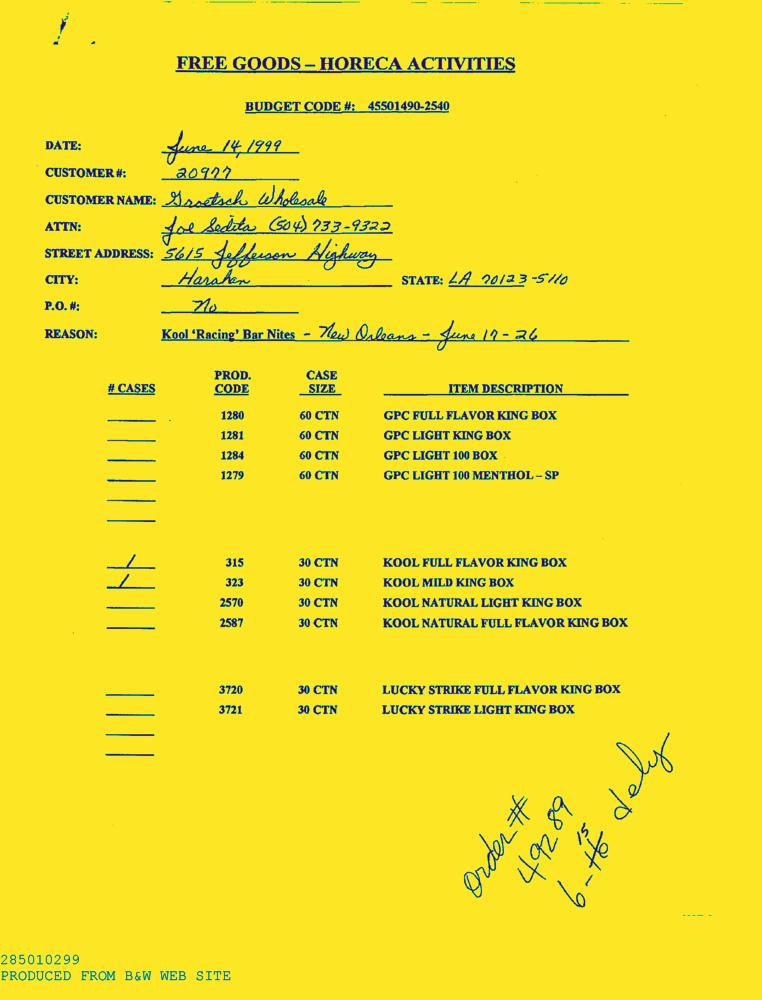 FREE GOODS – HORECA ACTIVITIES
BUDGET CODE #: 45501490-2540
DATE: June 14, 1999
CUSTOMER #: 20977
CUSTOMER NAME: Groetsch Wholesale
ATTN: Joe Sedita (504) 733-9322
STREET ADDRESS: 5615 Jefferson Highway
CITY: Harahan STATE: LA 70123-5110
P.O. #: No
REASON: Kool ‘Racing’ Bar Nites - New Orleans - June 17 - 26
# CASES PROD. CODE CASE SIZE ITEM DESCRIPTION
1280 60 CTN GPC FULL FLAVOR KING BOX
1281 60 CTN GPC LIGHT KING BOX
1284 60 CTN GPC LIGHT 100 BOX
1279 60 CTN GPC LIGHT 100 MENTHOL – SP
1 315 30 CTN KOOL FULL FLAVOR KING BOX
1 323 30 CTN KOOL MILD KING BOX
2570 30 CTN KOOL NATURAL LIGHT KING BOX
2587 30 CTN KOOL NATURAL FULL FLAVOR KING BOX
3720 30 CTN LUCKY STRIKE FULL FLAVOR KING BOX
3721 30 CTN LUCKY STRIKE LIGHT KING BOX
order #
49289
6-15 dely
285010299
PRODUCED FROM B&W WEB SITE